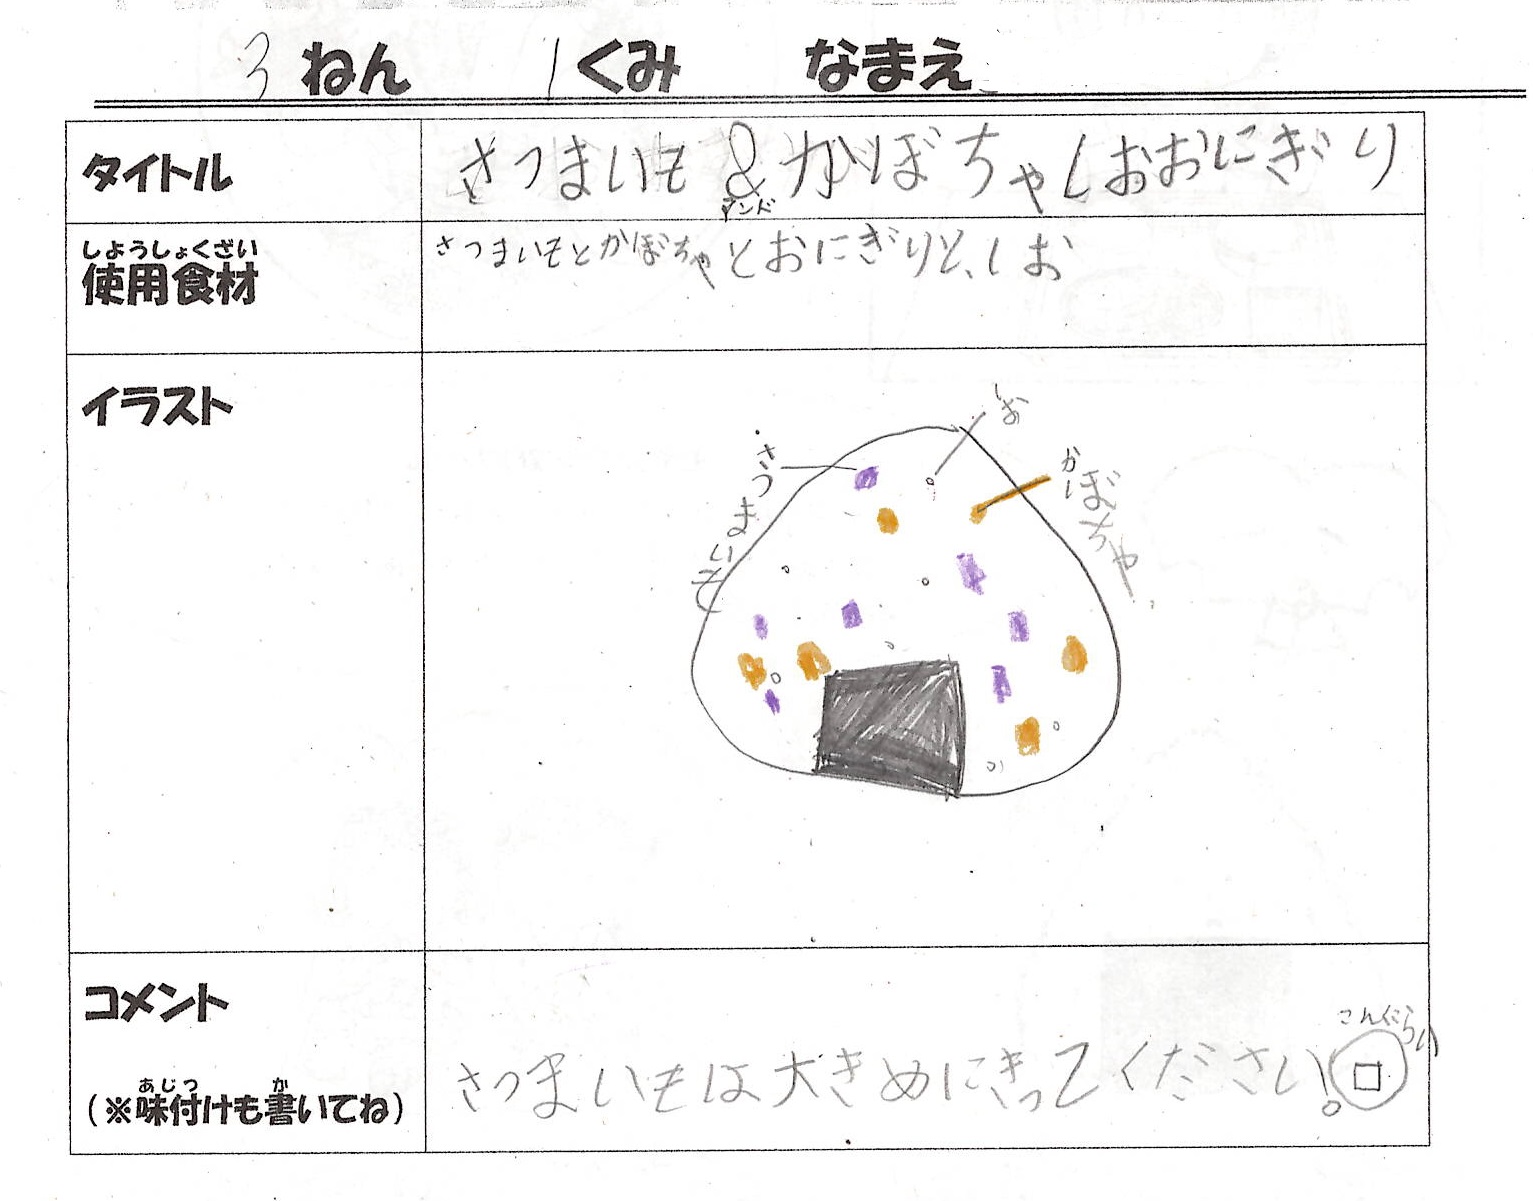 3 ねん 1 くみ なまえ
タイトル
さつまいも&かぼちゃしおおにぎり
アンド
しようしょくざい
使用食材
さつまいもとかぼちゃとおにぎりと、しお
イラスト
しお
さつまいも
かぼちゃ
コメント
あじつ か
(※味付けも書いてね)
さつまいもは大きめにきってください!
こんぐらい